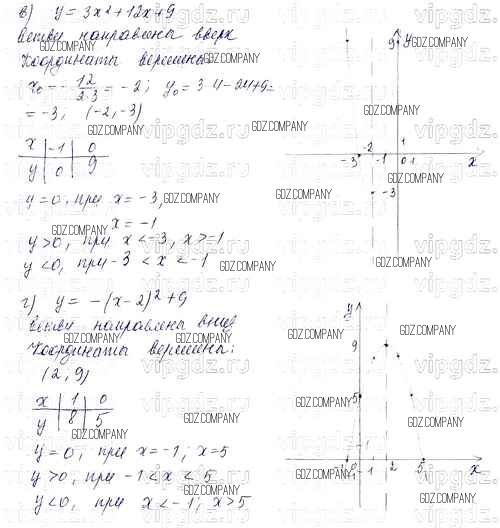 в) y = 3x² + 12x + 9
Ветви направлены вверх
Координаты вершины:
x₀ = -12/2·3 = -2; y₀ = 3·4 - 24 + 9 =
= -3, (-2, -3)
x | -1 | 0
y | 0 | 9
y = 0, при x = -3,
x = -1
y > 0, при x < -3, x > -1
y < 0, при -3 < x < -1
г) y = -(x-2)² + 9
Ветви направлены вниз
Координаты вершины:
(2, 9)
x | 1 | 0
y | 8 | 5
y = 0, при x = -1; x = 5
y > 0, при -1 < x < 5
y < 0, при x < -1; x > 5
9 y
1
-3 -2 -1 0 1 x
-3
y
9
5
1
-1 0 1 2 5 x
GDZ.COMPANY
vipgdz.ru